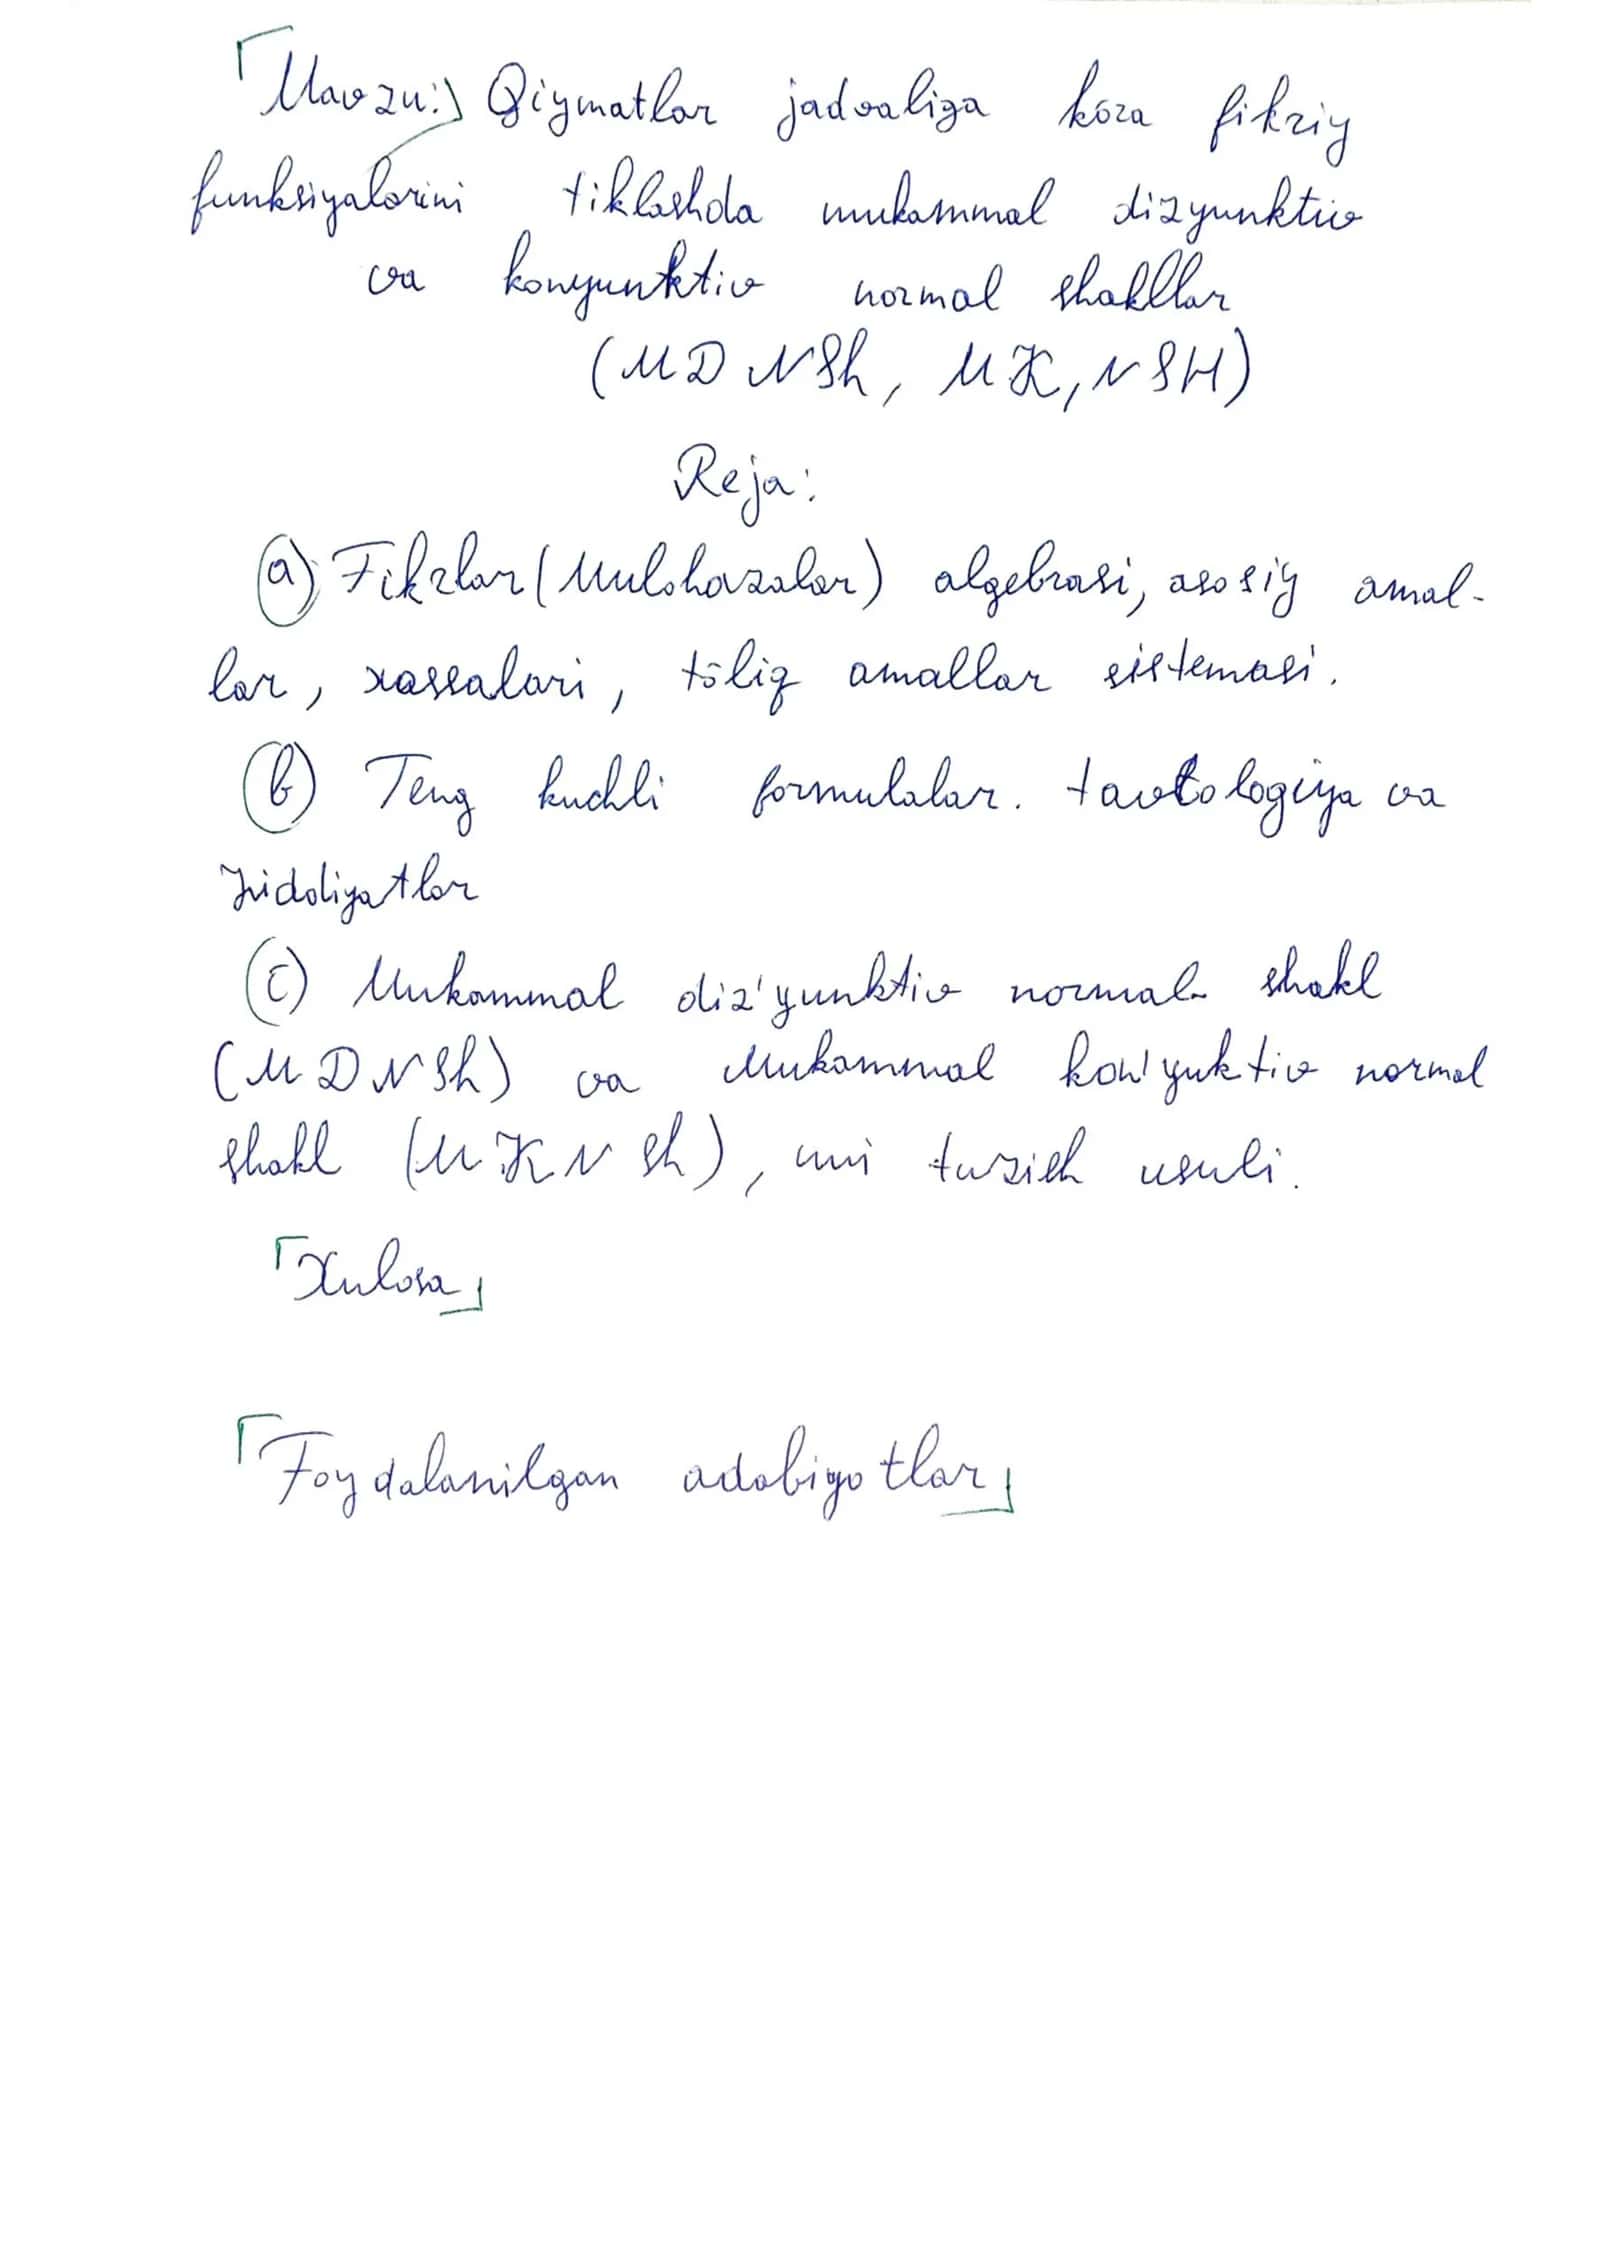 Mavzu: Qiymatlar jadvaliga ko̅ra fikriy
funksiyalarini tiklashda mukammal dizyunktiv
va konyunktiv normal shakllar
(MDNSh, MK,NSH)
Reja:
a) Fikrlar (Mulohazalar) algebrasi, asosiy amal-
lar, xassalari, to̅liq amallar sistemasi.
b) Teng kuchli formulalar. tavtologiya va
ziddiyatlar
c) Mukammal diz'yunktiv normal shakl
(MDNSh) va Mukammal kon'yuktiv normal
shakl (MKNSh), uni tuzish usuli.
Xulosa
Foydalanilgan adabiyotlar